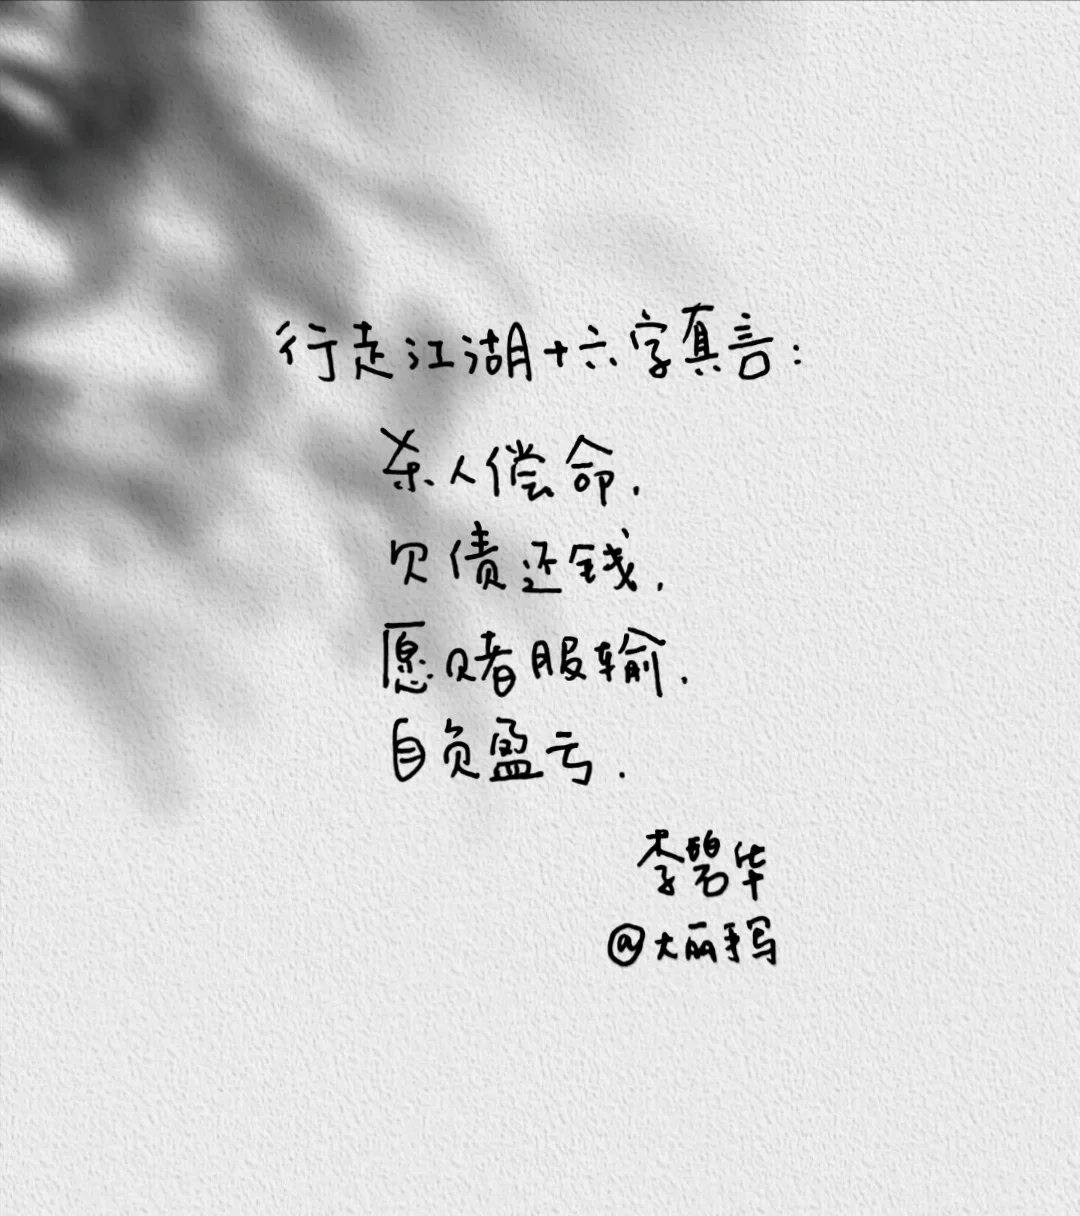 行走江湖十六字真言:
杀人偿命.
欠债还钱.
愿赌服输.
自负盈亏.
李碧华
@大丽手写